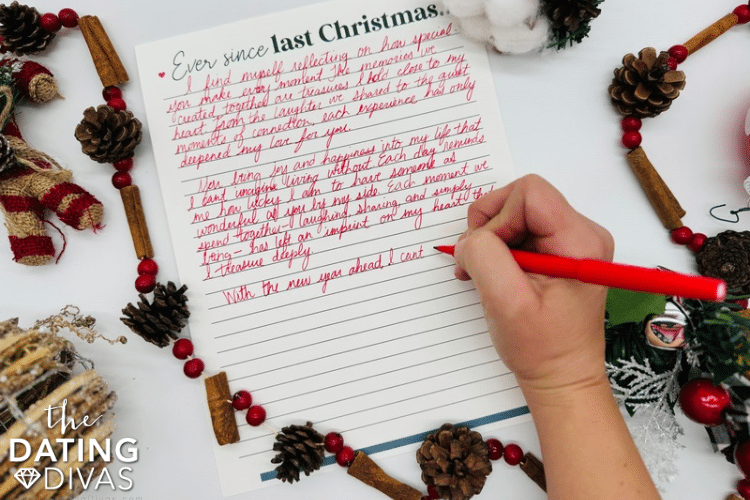 Ever since last Christmas...
I find myself reflecting on how special
you make every moment. The memories we
created together are treasures I hold close to my
heart. From the laughter we shared to the quiet
moments of connection, each experience has only
deepened my love for you.
You bring joy and happiness into my life that
I can't imagine living without. Each day reminds
me how lucky I am to have someone as
wonderful as you by my side. Each moment we
spend together - laughing, sharing, and simply
living - has left an imprint on my heart that
I treasure deeply.
With the new year ahead, I cant
the
DATING
DIVAS